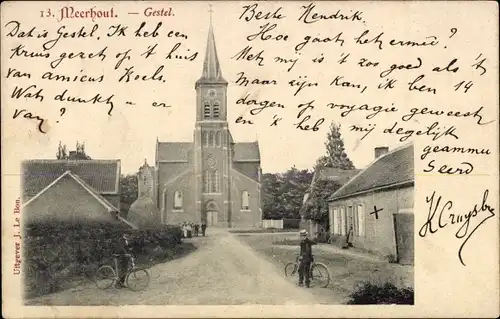 13. Meerhout. — Gestel.
Dat is Gestel. Ik heb een
Kruis gezet op t' huis
van amicus Koels.
Wat dunkt u er
van?
Beste Hendrik.
Hoe gaat het ermeê?
Met mij is 't zoo goed als 't
maar zijn kan, ik ben 14
dorgen op voyagie geweest
en 'k heb mij degelijk
geamu
seerd
H Cruysb
Uitgever J. Le Bon.